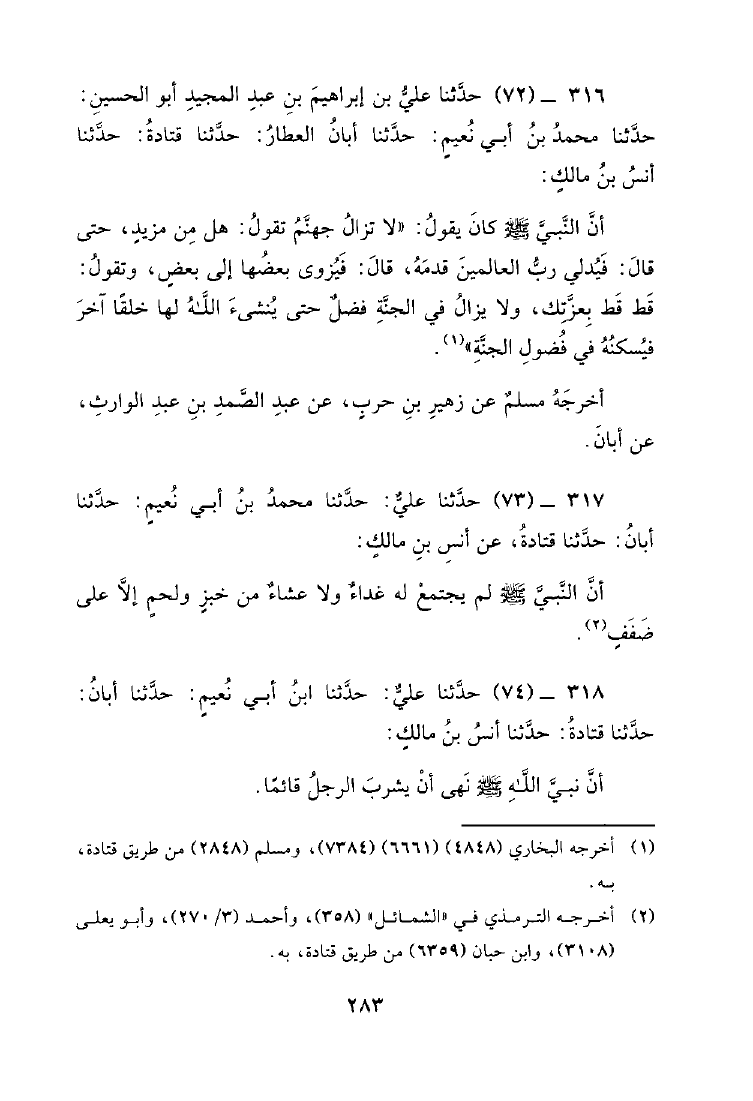 ٣١٦ ـ (٧٢) حدَّثنا عليُّ بن إبراهيمَ بنِ عبدِ المجيدِ أبو الحسينِ:
حدَّثنا محمدُ بنُ أبي نُعيمٍ: حدَّثنا أبانُ العطارُ: حدَّثنا قتادةُ: حدَّثنا
أنسُ بنُ مالكٍ:
أنَّ النَّبيَّ ﷺ كانَ يقولُ: «لا تزالُ جهنَّمُ تقولُ: هل مِن مزيدٍ، حتى
قالَ: فَيُدلي ربُّ العالمينَ قدمَهُ، قالَ: فَيُزوى بعضُها إلى بعضٍ، وتقولُ:
قَط قَط بِعزَّتِك، ولا يزالُ في الجنَّةِ فضلٌ حتى يُنشىءَ اللَّهُ لها خلقًا آخرَ
فيُسكنُهُ في فُضولِ الجنَّةِ»(١).
أخرجَهُ مسلمٌ عن زهيرِ بنِ حربٍ، عن عبدِ الصَّمدِ بنِ عبدِ الوارثِ،
عن أبانَ.
٣١٧ ـ (٧٣) حدَّثنا عليٌّ: حدَّثنا محمدُ بنُ أبي نُعيمٍ: حدَّثنا
أبانُ: حدَّثنا قتادةُ، عن أنسِ بنِ مالكٍ:
أنَّ النَّبيَّ ﷺ لم يجتمعْ له غداءٌ ولا عشاءٌ من خبزٍ ولحمٍ إلاَّ على
ضَفَفٍ(٢).
٣١٨ ـ (٧٤) حدَّثنا عليٌّ: حدَّثنا ابنُ أبي نُعيمٍ: حدَّثنا أبانُ:
حدَّثنا قتادةُ: حدَّثنا أنسُ بنُ مالكٍ:
أنَّ نبيَّ اللَّهِ ﷺ نَهى أنْ يشربَ الرجلُ قائمًا.
(١) أخرجه البخاري (٤٨٤٨) (٦٦٦١) (٧٣٨٤)، ومسلم (٢٨٤٨) من طريق قتادة،
به.
(٢) أخرجه الترمذي في «الشمائل» (٣٥٨)، وأحمد (٣/ ٢٧٠)، وأبو يعلى
(٣١٠٨)، وابن حبان (٦٣٥٩) من طريق قتادة، به.
٢٨٣